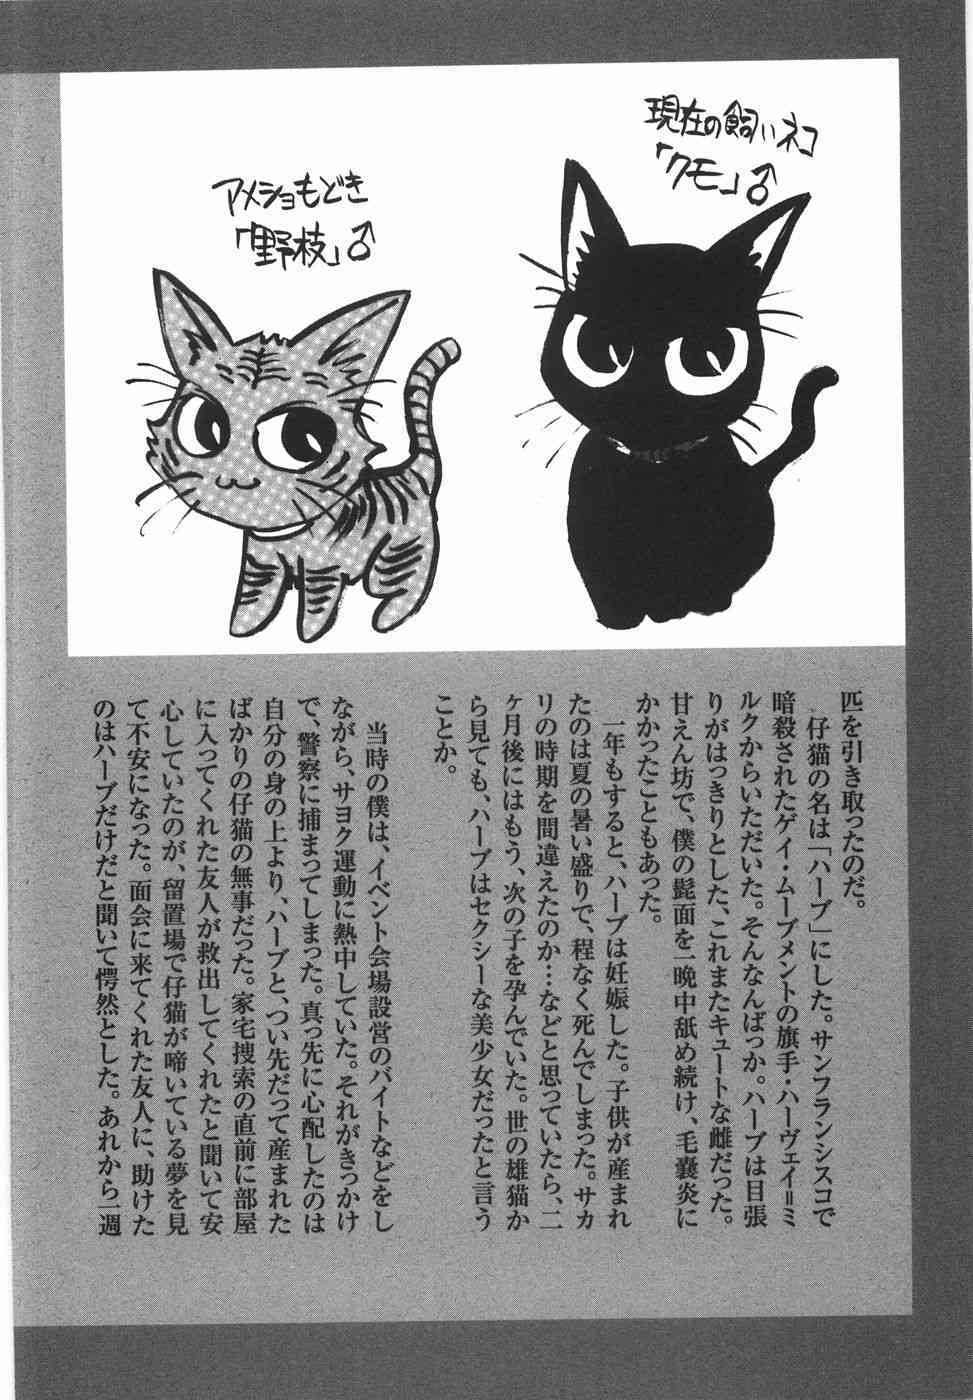 現在の飼いネコ
「クモ」♂
アメショもどき
「野枝」♂
匹を引き取ったのだ。
仔猫の名は「ハーブ」にした。サンフランシスコで
暗殺されたゲイ・ムーブメントの旗手・ハーヴェイ=ミ
ルクからいただいた。そんなんばっか。ハーブは目張
りがはっきりとした、これまたキュートな雌だった。
甘えん坊で、僕の髭面を一晩中舐め続け、毛嚢炎に
かかったこともあった。
一年もすると、ハーブは妊娠した。子供が産まれ
たのは夏の暑い盛りで、程なく死んでしまった。サカ
リの時期を間違えたのか…などと思っていたら、二
ヶ月後にはもう、次の子を孕んでいた。世の雄猫か
ら見ても、ハーブはセクシーな美少女だったと言う
ことか。
当時の僕は、イベント会場設営のバイトなどをし
ながら、サヨク運動に熱中していた。それがきっかけ
で、警察に捕まってしまった。真っ先に心配したのは
自分の身の上より、ハーブと、つい先だって産まれた
ばかりの仔猫の無事だった。家宅捜索の直前に部屋
に入ってくれた友人が救出してくれたと聞いて安
心していたのが、留置場で仔猫が啼いている夢を見
て不安になった。面会に来てくれた友人に、助けた
のはハーブだけだと聞いて愕然とした。あれから一週